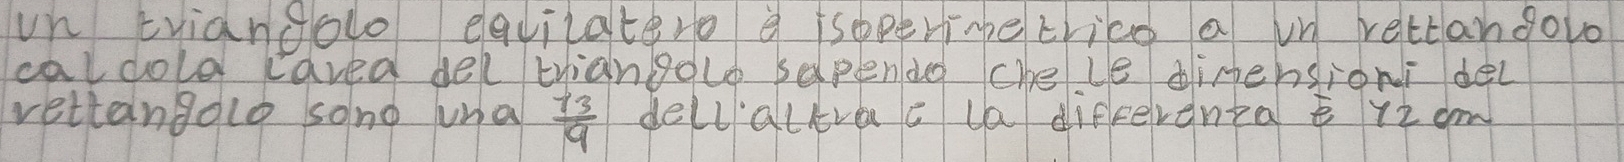 un triangolo equilatero è isoperimetrico a un rettangolo
calcola l'area del triangolo sapendo che le dimensioni del
rettangolo sono una 13/9 dell'altra e la differenza è 12 cm